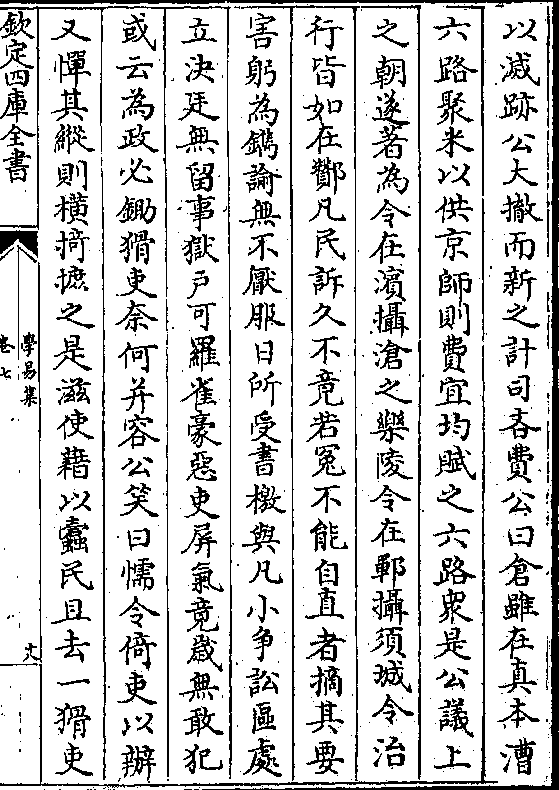 以滅跡公大撤而新之計司吝費公曰倉雖在真本漕
六路聚米以供京師則費宜均賦之六路衆是公議上
之朝遂著為令在濱攝滄之樂陵令在鄆攝須城令治
行皆如在酇凡民訴久不竟若冤不能自直者摘其要
害躬為鐫諭無不厭服日所受書檄與凡小争訟區處
立決廷無留事獄户可羅雀豪惡吏屏氣竟歳無敢犯
或云為政必鋤猾吏奈何并容公笑曰懦令倚吏以辦
又憚其縱則横掎摭之是滋使藉以蠹民且去一猾吏
欽定四庫全書
學易集
卷七